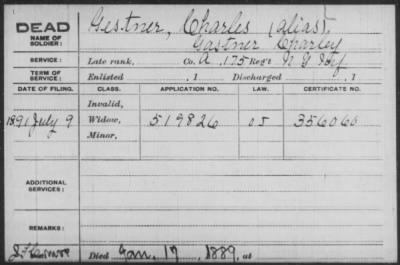 DEAD Gestner, Charles (alias),
NAME OF SOLDIER: Gastner Charley
SERVICE: Late rank, Co. A, 175 Reg't N Y Inf
TERM OF SERVICE: Enlisted , 1 Discharged , 1
DATE OF FILING. CLASS. APPLICATION NO. LAW. CERTIFICATE NO.
Invalid,
1891 July 9 Widow, 519826 05 356060
Minor,
ADDITIONAL SERVICES:
REMARKS:
Died Jan. 17, 1889, at